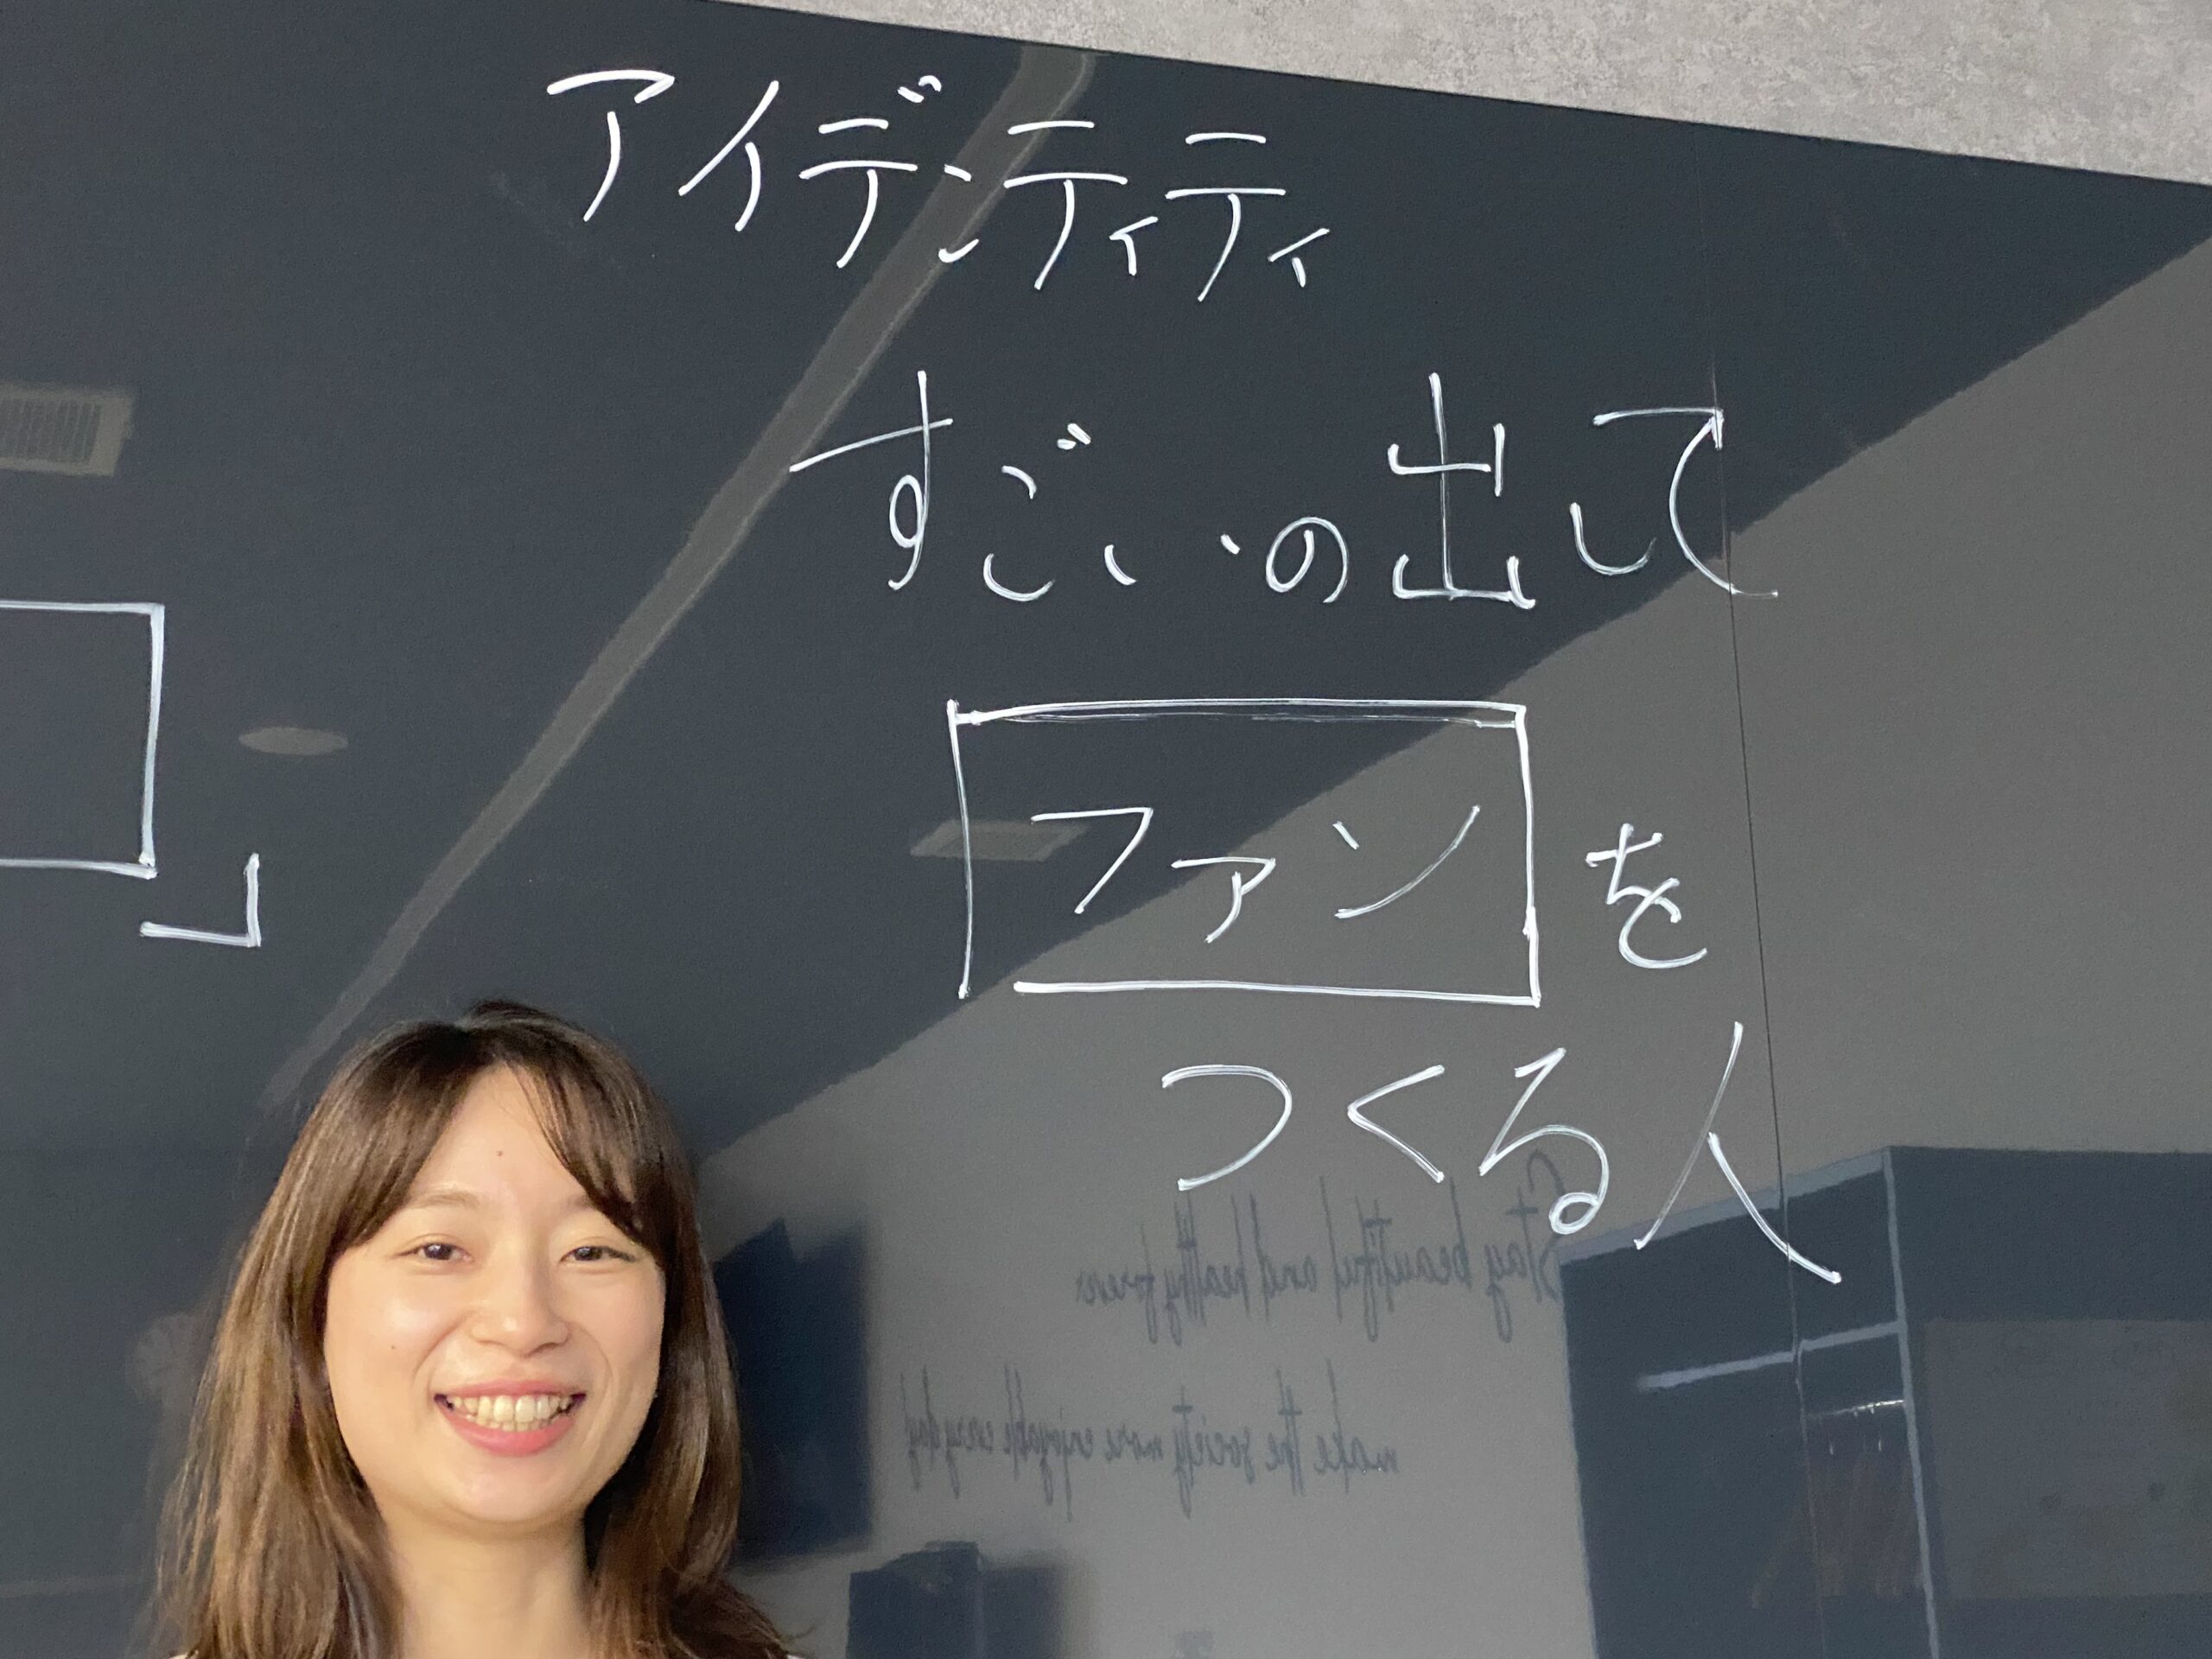 アイデンティティ
すごいの出して
ファンを
つくる人
」
Stay beautiful and healthy forever
make the society more enjoyable everyday